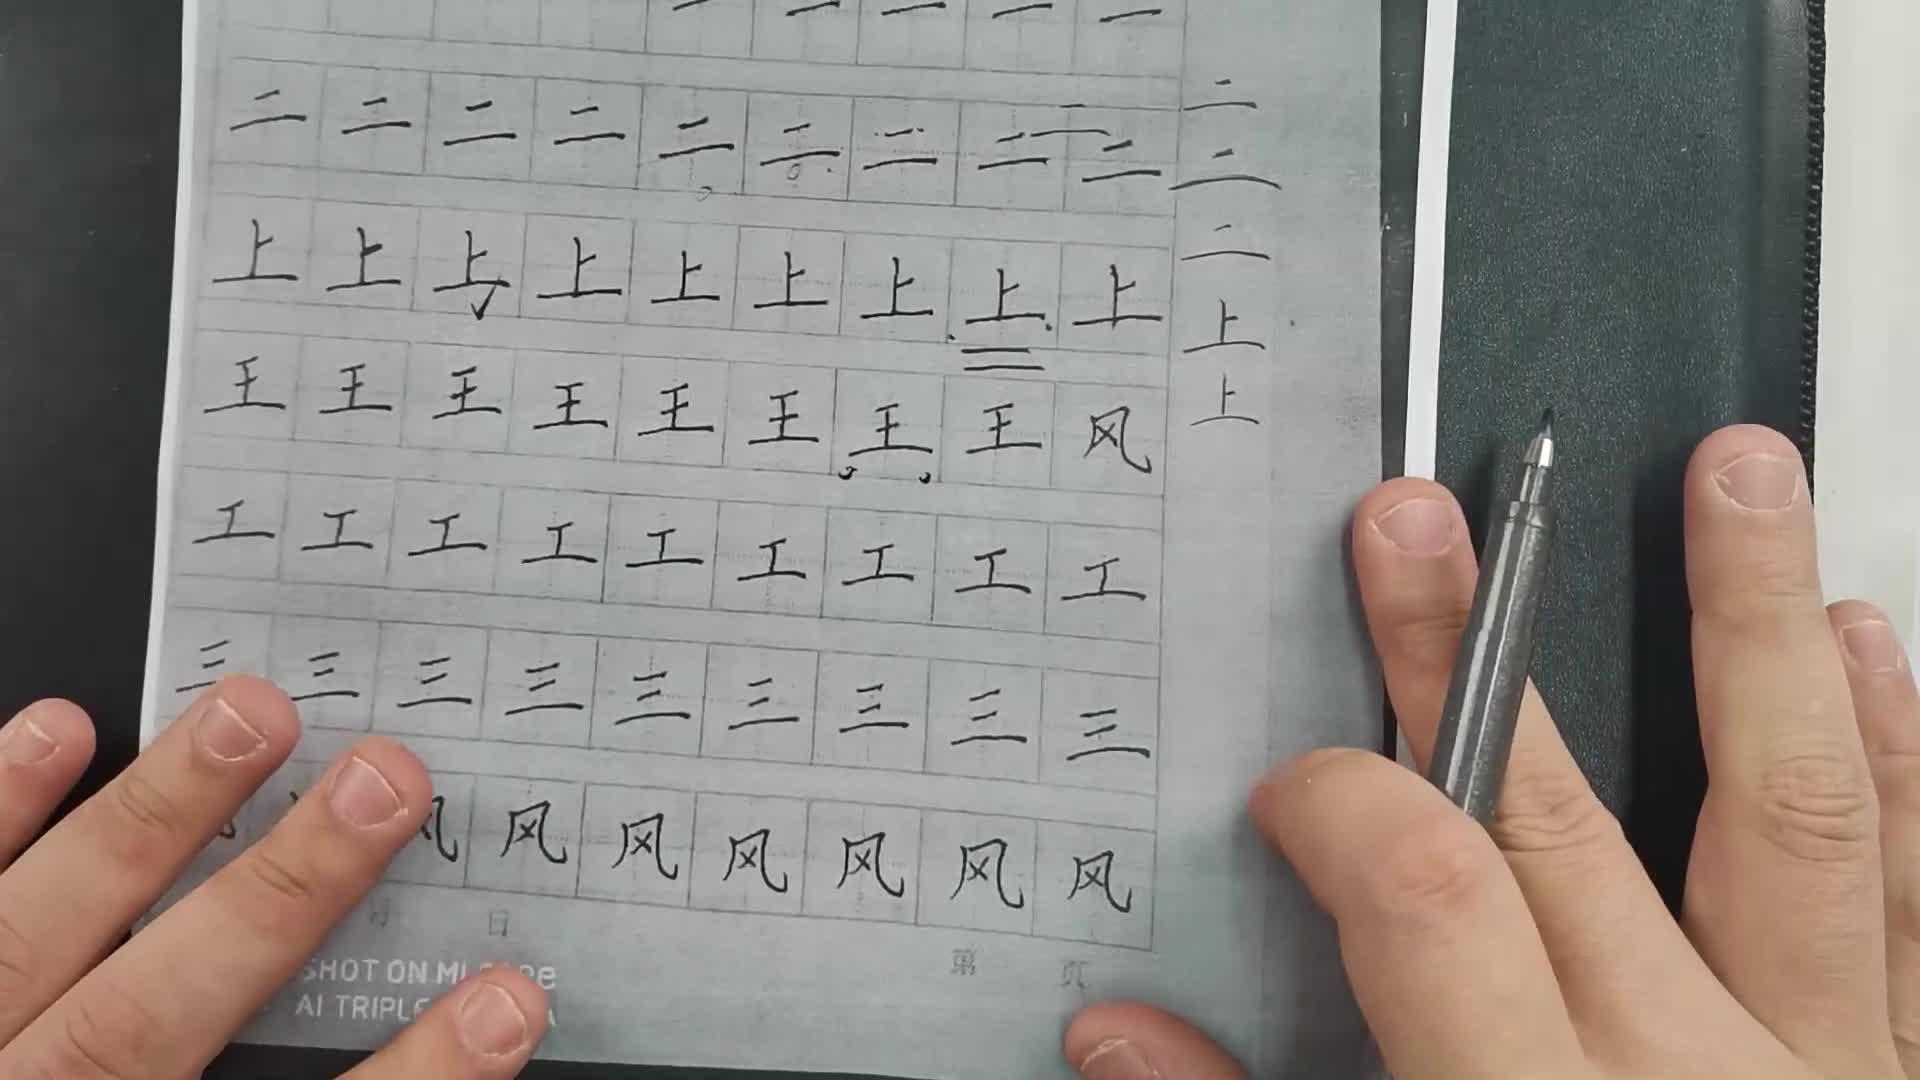 二 二 二 二 二 二 二 二 二
上 上 上 上 上 上 上 上 上
王 王 王 王 王 王 王 王 风
工 工 工 工 工 工 工 工 工
三 三 三 三 三 三 三 三 三
风 风 风 风 风 风
月 日 第 页
SHOT ON MI
AI TRIPLE
二
二
二
上
上